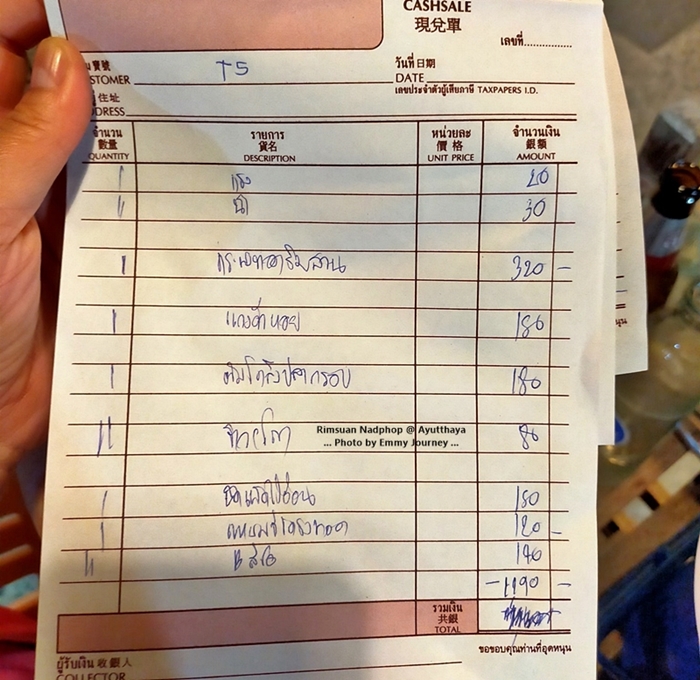 CASHSALE
現兌單
เลขที่
寶號
CUSTOMER T5
วันที่日期
DATE
住址
ADDRESS
เลขประจำตัวผู้เสียภาษี TAXPAPERS I.D.
จำนวน รายการ หน่วยละ จำนวนเงิน
數量 貨名 價格 銀額
QUANTITY DESCRIPTION UNIT PRICE AMOUNT
20
น้ำ 30
320 -
แกงคั่วหอย 180
ต้มโคล้งปลากรอบ 180
Rimsuan Nadphop @ Ayutthaya
... Photo by Emmy Journey ...
ข้าวโถ 80
150
แหนมซี่โครงทอด 120 -
-1190 -
รวมเงิน
共銀
TOTAL
ขอขอบคุณท่านที่อุดหนุน
ผู้รับเงิน 收銀人
COLLECTOR